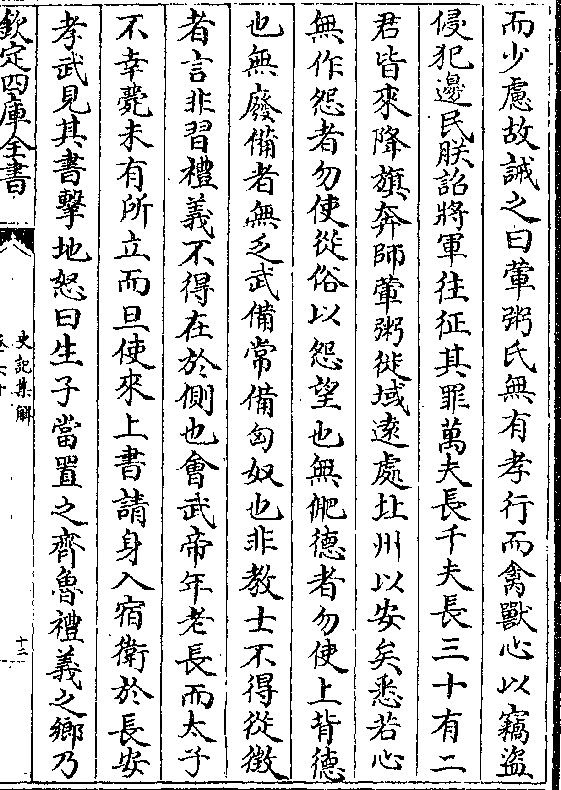 而少慮故誡之曰葷粥氏無有孝行而禽獸心以竊盜
侵犯邊民朕詔將軍往征其罪萬夫長千夫長三十有二
君皆來降旗奔師葷粥徙域遠處北州以安矣悉若心
無作怨者勿使從俗以怨望也無俷德者勿使上背德
也無廢備者無乏武備常備匈奴也非教士不得從徵
者言非習禮義不得在於側也會武帝年老長而太子
不幸薨未有所立而旦使來上書請身入宿衛於長安
孝武見其書擊地怒曰生子當置之齊魯禮義之鄉乃
欽定四庫全書
史記集解
卷六十
十二